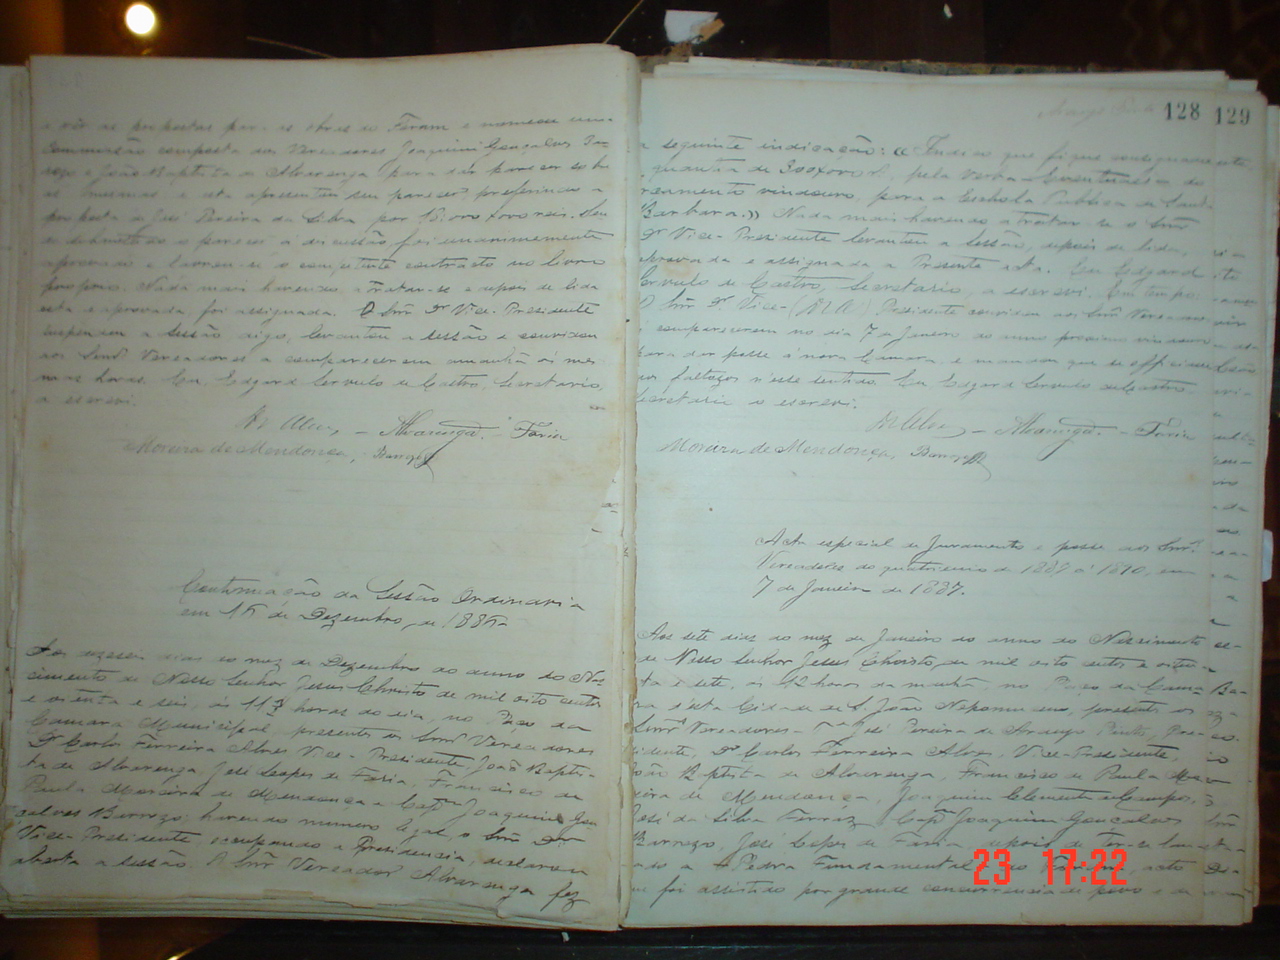 e vão as propostas para as obras do Foram e nomeou uma
Commissão composta dos Vereadores Joaquim Gonçalves
e João Baptista de Alvarenga para dar parecer so b e
as mesmas e esta apresentou seu parecer, preferindo a
proposta de José Pereira da Silva por
submettido o parecer a discussão foi unanimemente
approvado e lavrou-se o competente contracto no livro
proprio. Nada mais havendo a tratar-se e depois de lida
esta e approvada, foi assignada. O Snr. Dr. Vice-Presidente
suspendeu a sessão digo, levantou a sessão e convidou
aos Senrs. Vereadores a comparecerem amanhã ás mes
mas horas. Eu Edgard Servulo de Castro, Secretario,
a escrevi.
Alves – Alvarenga. – Faria
Moreira de Mendonça,
Continuação da Sessão Ordinaria
em 16 de Dezembro, de 1886
Aos dezeseis dias do mez de Dezembro do anno do Nas
cimento de Nosso Senhor Jesus Christo de mil oito centos
e oitenta e seis, ás 11 horas do dia, no Paço da
Camara Municipal, presentes os Snrs. Vereadores
Dr. Carlos Ferreira Alves Vice-Presidente, João Baptis-
ta de Alvarenga, José Lopes de Faria, Francisco de
Paula Moreira de Mendonça e Capm. Joaquim Gon
çalves Barrozo; havendo numero legal, o Snr. Dr.
Vice-Presidente occupando a Presidencia, declarou
aberta a sessão. O Snr. Vereador Alvarenga fez
128 129
a seguinte indicação: « Indico que fique consignada
quantia de 300$000, pela verba do
orçamento vindouro, para a Eschola Publica de Santa
Barbara.» Nada mais havendo a tratar-se o Snr.
Dr. Vice-Presidente levantou a sessão, depois de lida,
approvada e assignada a presente acta. Eu Edgard
Servulo de Castro, Secretario, a escrevi. Em tempo:
O Snr. Dr. Vice- Presidente convidou aos Snrs. Vereadores
a comparecerem no dia 7 de Janeiro do anno proximo vindouro
para dar posse á nova Camara e mandou que se officiasse
aos faltosos n'esse sentido. Eu Edgard Servulo de Castro
Secretario o escrevi.
Alves – Alvarenga. – Faria
Moreira de Mendonça,
Acta especial de Juramento e posse aos Snrs.
Vereadores do quatriennio de 1887 a 1890, em
7 de Janeiro de 1887.
Aos sete dias do mez de Janeiro do anno do Nascimento
de Nosso Senhor Jesus Christo, de mil oito centos e oiten-
ta e sete, ás 12 horas da manhã, no Paço da Cama
ra d'esta Cidade de S. João Nepomuceno, presentes os
Snrs. Vereadores José Pereira de Araujo Pinto, Pre-
sidente, Dr. Carlos Ferreira Alves, Vice-Presidente,
João Baptista de Alvarenga, Francisco de Paula Mo
reira de Mendonça, Joaquim Clemente de Campos,
José da Silva Ferraz, Capm. Joaquim Gonçalves
Barrozo, José Lopes de Faria, depois de ter-se lan
ado a Pedra Fundamental do acto
que foi assistido por grande concurrencia de povo e
23 17:22